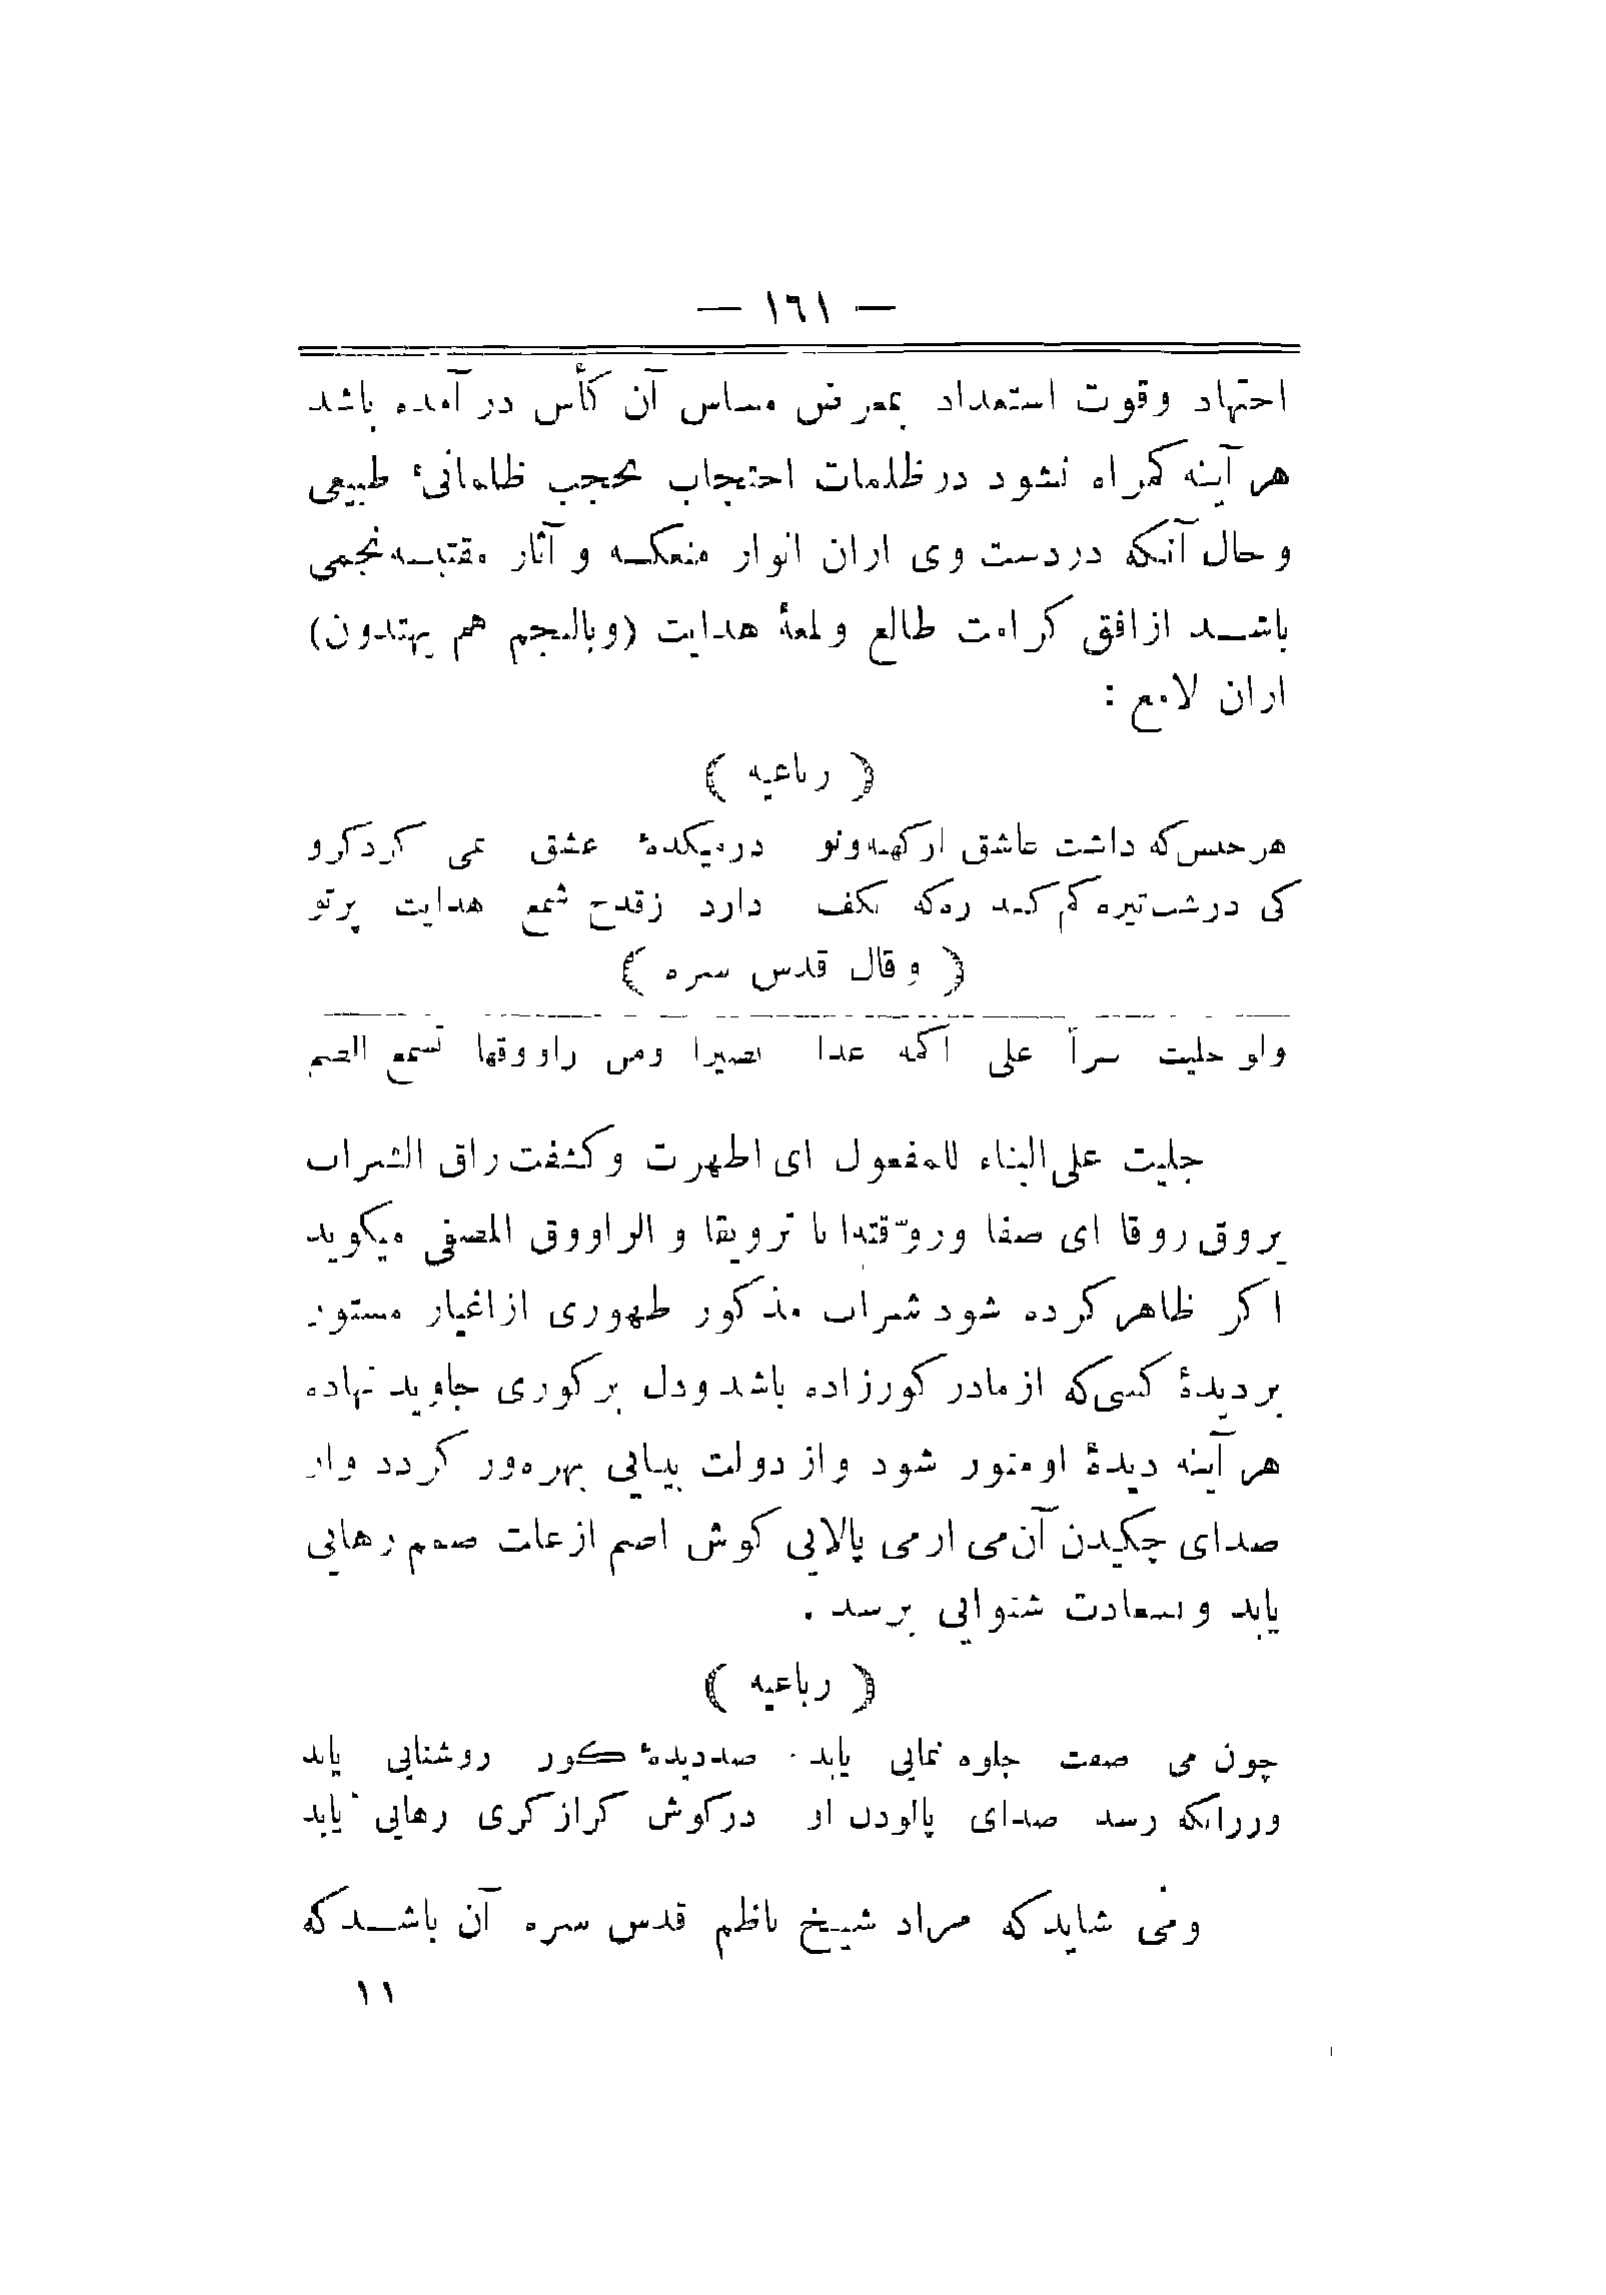 — ١٦١ —
اجتهاد وقوت استعداد بمعرض مساس آن كأس در آمده باشد
هر آینه كمراه نشود در ظلمات احتجاب بحجب ظلمانیٔ طبیعی
وحال آنكه دردست وی ازان انوار منعكسه و آثار مقتبسه نجمی
باشد ازافق كرامت طالع ولمعهٔ هدایت (وبالنجم هم یهتدون)
ازان لامع :
( رباعیه )
هر جنس كه داشت عاشق از كهنه ونو درمیكدهٔ عشق بمی كرد كرو
كی درشب تیره كم كند ره كه بكف دارد زقدح شمع هدایت پرتو
( وقال قدس سره )
ولو جلیت سراً علی اكمه غدا بصیرا ومن راووقها تسمع الصم
جلیت علی البناء للمفعول ای اظهرت وكشفت راق الشراب
یروق روقا ای صفا وروّقته انا ترویقا و الراووق المصفی میكوید
اكر ظاهر كرده شود شراب مذكور طهوری ازاغیار مستور
بردیدهٔ كسی كه ازمادر كورزاده باشد ودل بر كوری جاوید نهاده
هر آینه دیدهٔ اومنور شود واز دولت بینایی بهره ور كردد واز
صدای چكیدن آن می ازمی پالایی كوش اصم ازعلت صمم رهایی
یابد وبسعادت شنوایی برسد .
( رباعیه )
چون می صفت جلوه نمایی یابد صد دیدهٔ كور روشنایی یابد
ورزانكه رسد صدای پالودن او دركوش كر ازكری رهایی یابد
ومی شاید كه مراد شیخ ناظم قدس سره آن باشد كه
١١